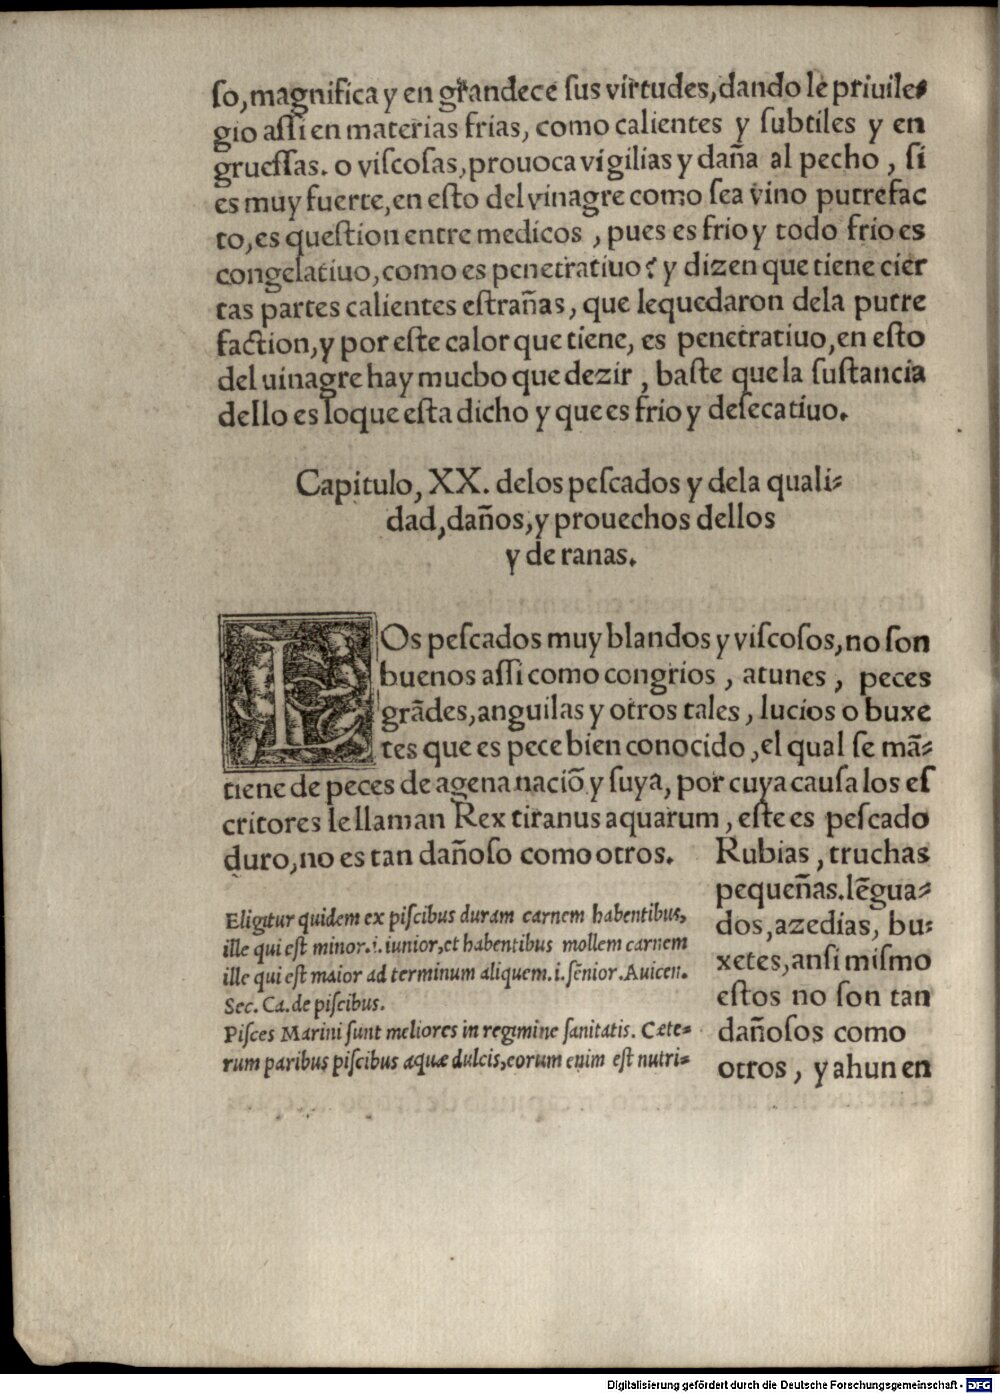 ſo, magnifica y en grandece ſus virtudes, dando le priuile⸗
gio aſſi en materias frias, como calientes y ſubtiles y en
grueſſas. o viſcoſas, prouoca vigilias y daña al pecho, ſi
es muy fuerte, en eſto del vinagre como ſea vino putrefac
to, es queſtion entre medicos, pues es frio y todo frio es
congelatiuo, como es penetratiuo? y dizen que tiene cier
tas partes calientes eſtrañas, que lequedaron dela putre
faction, y por eſte calor que tiene, es penetratiuo, en eſto
del uinagre hay mucbo que dezir, baſte que la ſuſtancia
dello es loque eſta dicho y que es frio y deſecatiuo.
Capitulo, XX. delos peſcados y dela quali⸗
dad, daños, y prouechos dellos
y de ranas.
LOs peſcados muy blandos y viſcoſos, no ſon
buenos aſſi como congrios, atunes, peces
grãdes, anguilas y otros tales, lucios o buxe
tes que es pece bien conocido, el qual ſe mã⸗
tiene de peces de agena naciõ y ſuya, por cuya cauſa los eſ
critores le llaman Rex tiranus aquarum, eſte es peſcado
duro, no es tan dañoſo como otros. Rubias, truchas
pequeñas. lẽgua⸗
dos, azedias, bu⸗
xetes, anſi miſmo
eſtos no ſon tan
dañoſos como
otros, y ahun en
Eligitur quidem ex piſcibus duram carnem habentibus,
ille qui eſt minor. i. iunior, et habentibus mollem carnem
ille qui eſt maior ad terminum aliquem. i. ſẽnior. Auicen.
Sec. Ca. de piſcibus.
Piſces Marini ſunt meliores in regimine ſanitatis. Cæte⸗
rum paribus piſcibus aquæ dulcis, eorum enim eſt nutri⸗
Digitalisierung gefördert durch die Deutsche Forschungsgemeinschaft - DFG